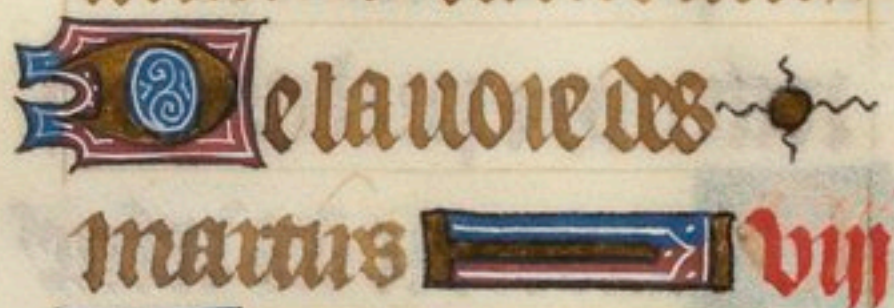 De la uoie des
martirs viij